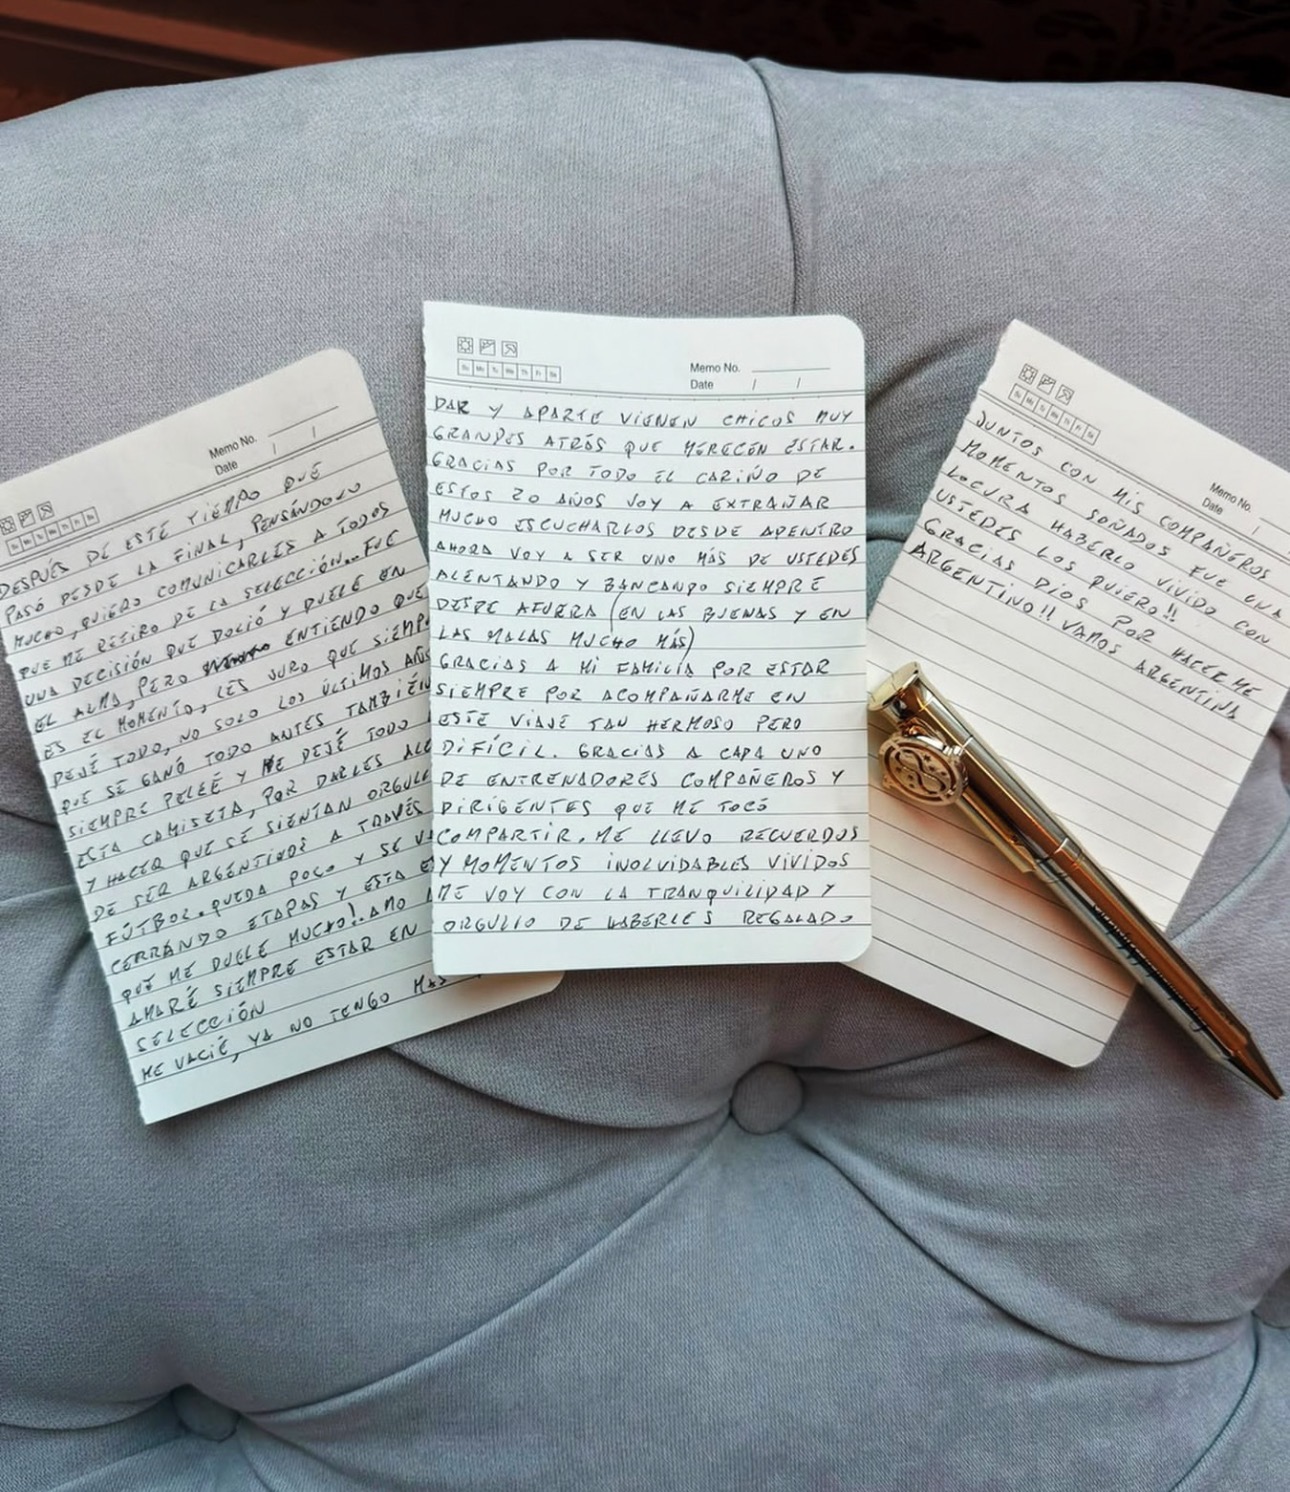 Memo No.
Date / /
DESPUÉS DE ESTE TIEMPO QUE
PASÓ DESDE LA FINAL, PENSÁNDOLO
MUCHO, QUIERO COMUNICARLES A TODOS
QUE ME RETIRO DE LA SELECCIÓN... FUE
UNA DECISIÓN QUE DOLIÓ Y DUELE EN
EL ALMA, PERO ENTIENDO QUE
ES EL MOMENTO, LES JURO QUE SIEMP
DEJÉ TODO, NO SOLO LOS ÚLTIMOS AÑOS
QUE SE GANÓ TODO ANTES TAMBIÉN
SIEMPRE PELEÉ Y DEJÉ TODO
ESTA CAMISETA, POR DARLES ALE
Y HACER QUE SE SIENTAN ORGULL
DE SER ARGENTINOS A TRAVÉS
FÚTBOL. QUEDA POCO Y SE VA
CERRANDO ETAPAS Y ESTA E
QUE ME DUELE MUCHO!. AMO
AMARÉ SIEMPRE ESTAR EN
SELECCIÓN
ME VACIÉ, YA NO TENGO MÁS
Su Mo Tu We Th Fr Sa
Memo No.
Date / /
DAR Y APARTE VIENEN CHICOS MUY
GRANDES ATRÁS QUE MERECEN ESTAR.
GRACIAS POR TODO EL CARIÑO DE
ESTOS 20 AÑOS VOY A EXTRAÑAR
MUCHO ESCUCHARLOS DESDE ADENTRO
AHORA VOY A SER UNO MÁS DE USTEDES
ALENTANDO Y BANCANDO SIEMPRE
DESDE AFUERA (EN LAS BUENAS Y EN
LAS MALAS MUCHO MÁS)
GRACIAS A MI FAMILIA POR ESTAR
SIEMPRE POR ACOMPAÑARME EN
ESTE VIAJE TAN HERMOSO PERO
DIFÍCIL. GRACIAS A CADA UNO
DE ENTRENADORES COMPAÑEROS Y
DIRIGENTES QUE ME TOCÓ
COMPARTIR. ME LLEVO RECUERDOS
Y MOMENTOS INOLVIDABLES VIVIDOS
ME VOY CON LA TRANQUILIDAD Y
ORGULLO DE HABERLES REGALADO
Memo No.
Date /
JUNTOS CON MIS COMPAÑEROS
MOMENTOS SOÑADOS FUE UNA
LOCURA HABERLO VIVIDO CON
USTEDES LOS QUIERO!!
GRACIAS DIOS POR HACERME
ARGENTINO!! VAMOS ARGENTINA